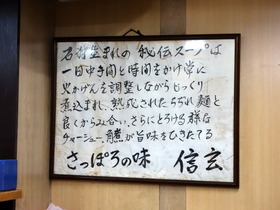 石狩生まれの秘伝スープは
一日中手間と時間をかけ常に
火かげんを調整しながらじっくり
煮込まれ、熟成されたちぢれ麺と
良くからみ合い、さらにとろける様な
チャーシュー、角煮が旨味をひきたてる
さっぽろの味 信玄